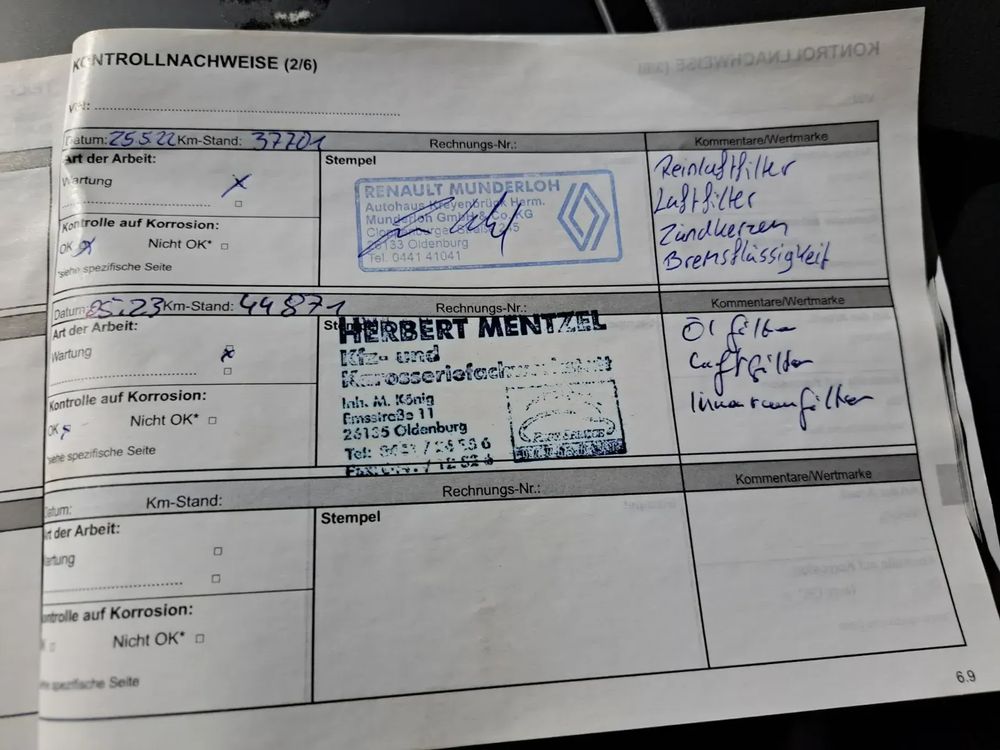 KONTROLLNACHWEISE (2/6)
VIN:
Datum: 25.5.22 Km-Stand: 37701 Rechnungs-Nr.: Kommentare/Wertmarke
Art der Arbeit:
Wartung
Kontrolle auf Korrosion:
OK Nicht OK*
*siehe spezifische Seite
Stempel
RENAULT MUNDERLOH
Autohaus Kreyenbrück Herm.
Munderloh GmbH & Co. KG
26133 Oldenburg
Tel. 0441 41041
Reinluftfilter
Luftfilter
Zündkerzen
Bremsflüssigkeit
Datum: 05.23 Km-Stand: 44871 Rechnungs-Nr.: Kommentare/Wertmarke
Art der Arbeit:
Wartung
Kontrolle auf Korrosion:
OK Nicht OK*
*siehe spezifische Seite
HERBERT MENTZEL
Kfz- und
Karosseriefachwerkstatt
Inh. M. König
Emsstraße 11
26135 Oldenburg
Tel:
Öl filter
Luftfilter
Innenraumfilter
Datum: Km-Stand: Rechnungs-Nr.: Kommentare/Wertmarke
Art der Arbeit:
Wartung
Kontrolle auf Korrosion:
Nicht OK*
siehe spezifische Seite
Stempel
6.9